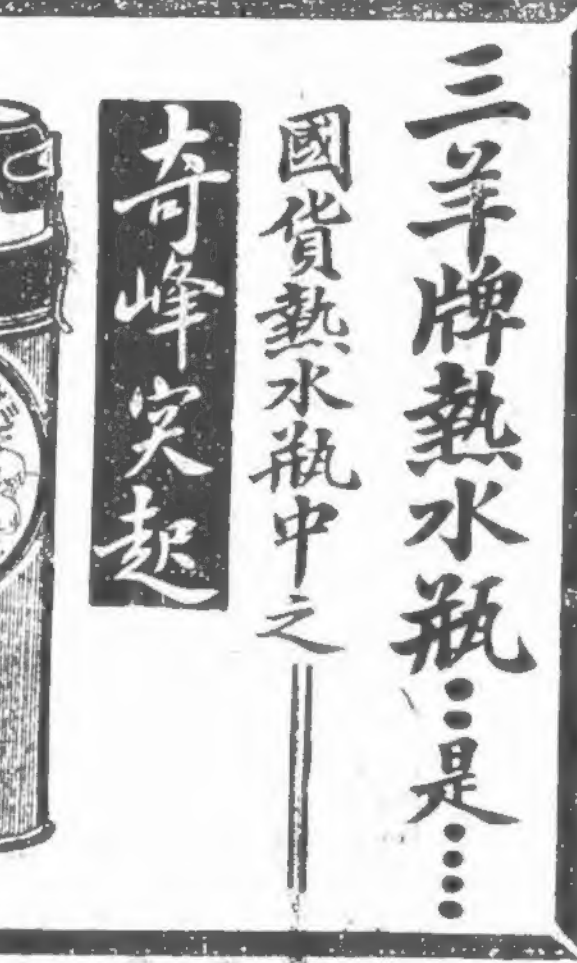 三羊牌熱水瓶:‥是‥‥
國貨熱水瓶中之══
奇峰突起